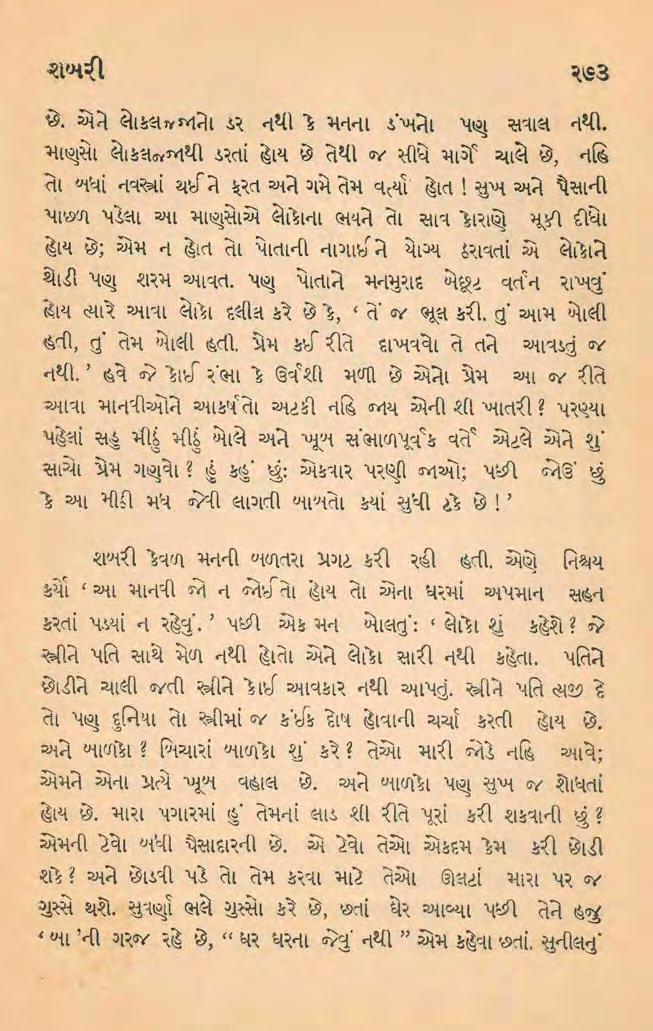 શબરી ૨૭૩
છે. એને લોકલજ્જાનો ડર નથી કે મનના ડંખનો પણ સવાલ નથી.
માણસો લોકલજ્જાથી ડરતાં હોય છે તેથી જ સીધે માર્ગે ચાલે છે, નહિ
તો બધાં નવસ્ત્રાં થઈ ને ફરત અને ગમે તેમ વર્ત્યાં હોત ! સુખ અને પૈસાની
પાછળ પડેલા આ માણસોએ લોકોના ભયને તો સાવ કોરાણે મૂકી દીધો
હોય છે; એમ ન હોત તો પોતાની નાગાઈ ને યોગ્ય ઠરાવતાં એ લોકોને
થોડી પણ શરમ આવત. પણ પોતાને મનમુરાદ બેછૂટ વર્તન રાખવું
હોય ત્યારે આવા લોકો દલીલ કરે છે કે, ‘ તેં જ ભૂલ કરી. તું આમ બોલી
હતી, તું તેમ બોલી હતી. પ્રેમ કઈ રીતે દાખવવો તે તને આવડતું જ
નથી. ’ હવે જે કોઈ રંભા કે ઉર્વશી મળી છે એનો પ્રેમ આ જ રીતે
આવા માનવીઓને આકર્ષતો અટકી નહિ જાય એની શી ખાતરી ? પરણ્યા
પહેલાં સહુ મીઠું મીઠું બોલે અને ખૂબ સંભાળપૂર્વક વર્તે એટલે એને શું
સાચો પ્રેમ ગણવો ? હું કહું છું: એકવાર પરણી જાઓ; પછી જોઉં છું
કે આ મીઠી મધ જેવી લાગતી બાબતો કયાં સુધી ટકે છે ! ’
શબરી કેવળ મનની બળતરા પ્રગટ કરી રહી હતી. એણે નિશ્ચય
કર્યો ‘ આ માનવી જો ન જોઈતો હોય તો એના ઘરમાં અપમાન સહન
કરતાં પડયાં ન રહેવું. ’ પછી એક મન બોલતું: ‘ લોકો શું કહેશે ? જે
સ્ત્રીને પતિ સાથે મેળ નથી હોતો એને લોકો સારી નથી કહેતા. પતિને
છોડીને ચાલી જતી સ્ત્રીને કોઈ આવકાર નથી આપતું. સ્ત્રીને પતિ ત્યજી દે
તો પણ દુનિયા તો સ્ત્રીમાં જ કંઈક દોષ હોવાની ચર્ચા કરતી હોય છે.
અને બાળકો ? બિચારાં બાળકો શું કરે ? તેઓ મારી જોડે નહિ આવે;
એમને એના પ્રત્યે ખૂબ વહાલ છે. અને બાળકો પણ સુખ જ શોધતાં
હોય છે. મારા પગારમાં હું તેમનાં લાડ શી રીતે પૂરાં કરી શકવાની છું ?
એમની ટેવો બધી પૈસાદારની છે. એ ટેવો તેઓ એકદમ કેમ કરી છોડી
શકે ? અને છોડવી પડે તો તેમ કરવા માટે તેઓ ઊલટાં મારા પર જ
ગુસ્સે થશે. સુવર્ણા ભલે ગુસ્સો કરે છે, છતાં ઘેર આવ્યા પછી તેને હજુ
‘ બા ’ની ગરજ રહે છે, “ ઘર ઘરના જેવું નથી ” એમ કહેવા છતાં. સુનીલનું